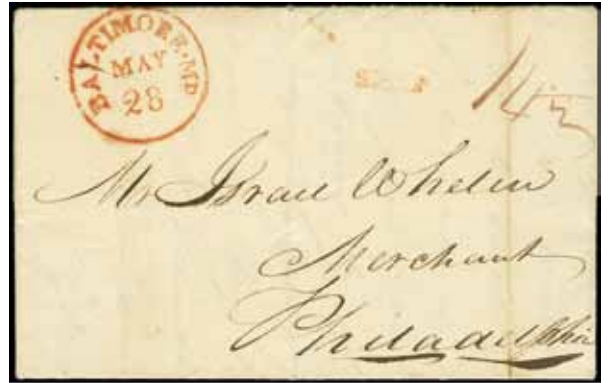 BALTIMORE. MD
MAY
28
SHIP
14½
Mr Israel Whelen
Merchant
Philadelphia